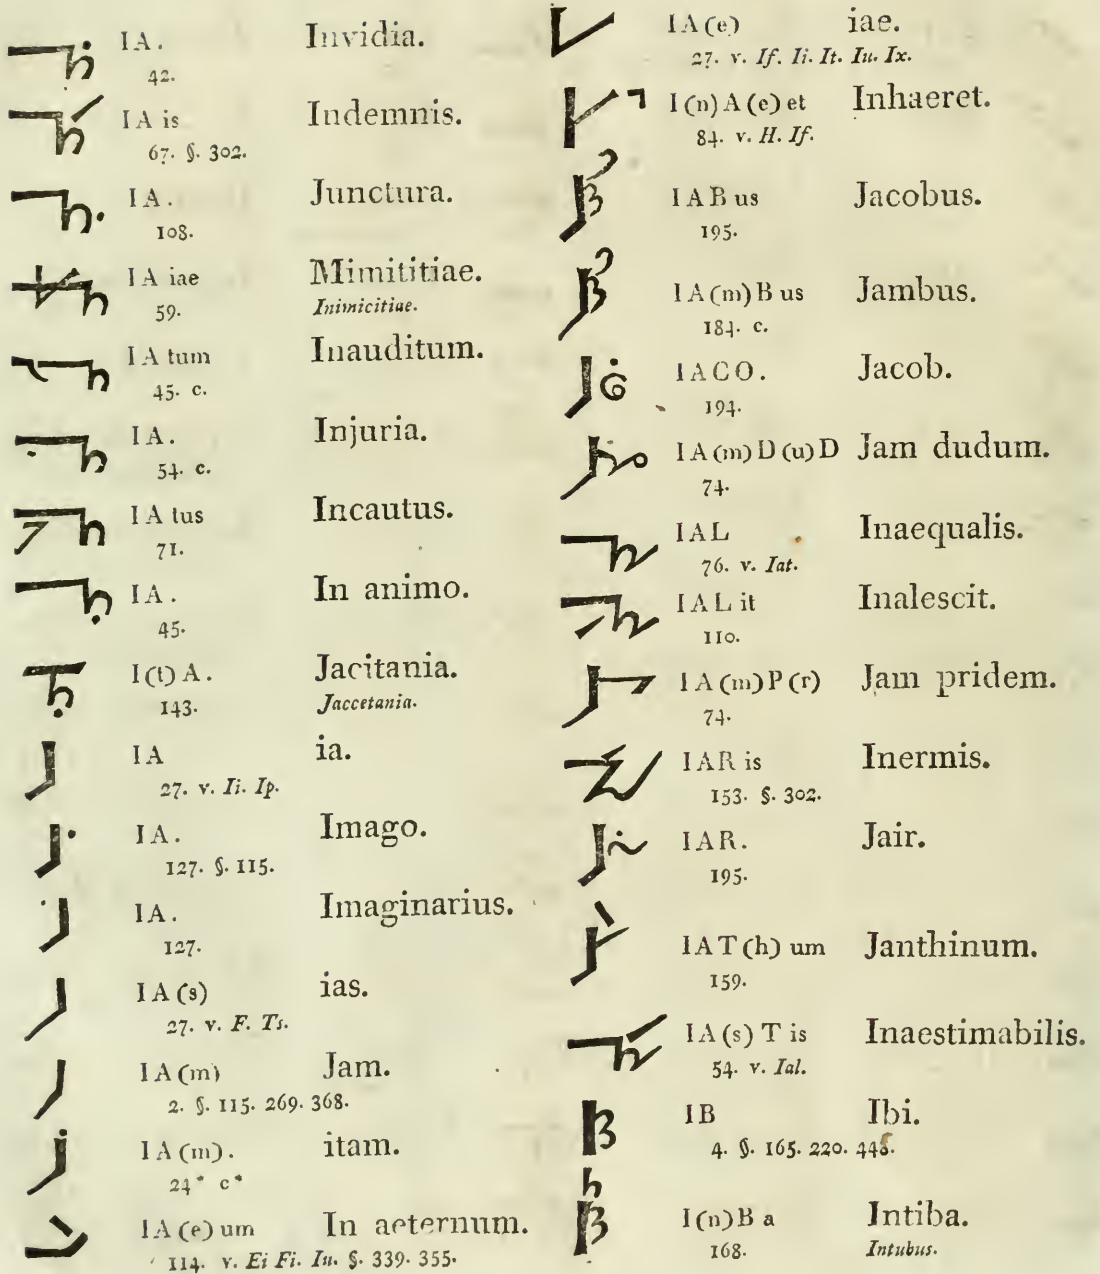 IA. Invidia.
42.
IA is Indemnis.
67. §. 302.
IA. Junctura.
108.
IA iae Mimititiae.
59. Inimicitiae.
IA tum Inauditum.
45. c.
IA. Injuria.
54. c.
IA tus Incautus.
71.
IA. In animo.
45.
I(t)A. Jacitania.
143. Jaccetania.
IA ia.
27. v. Ii. Ip.
IA. Imago.
127. §. 115.
IA. Imaginarius.
127.
IA(s) ias.
27. v. F. Ts.
IA(m) Jam.
2. §. 115. 269. 368.
IA(m). itam.
24* c*
IA(e) um In aeternum.
114. v. Ei Fi. Iu. §. 339. 355.
IA(e) iae.
27. v. If. Ii. It. Iu. Ix.
I(n)A(e) et Inhaeret.
84. v. H. If.
IAB us Jacobus.
195.
IA(m)B us Jambus.
184. c.
IACO. Jacob.
194.
IA(m)D(u)D Jam dudum.
74.
IAL Inaequalis.
76. v. Iat.
IAL it Inalescit.
110.
IA(m)P(r) Jam pridem.
74.
IAR is Inermis.
153. §. 302.
IAR. Jair.
195.
IAT(h) um Janthinum.
159.
IA(s)T is Inaestimabilis.
54. v. Ial.
IB Ibi.
4. §. 165. 220. 448.
I(n)B a Intiba.
168. Intubus.